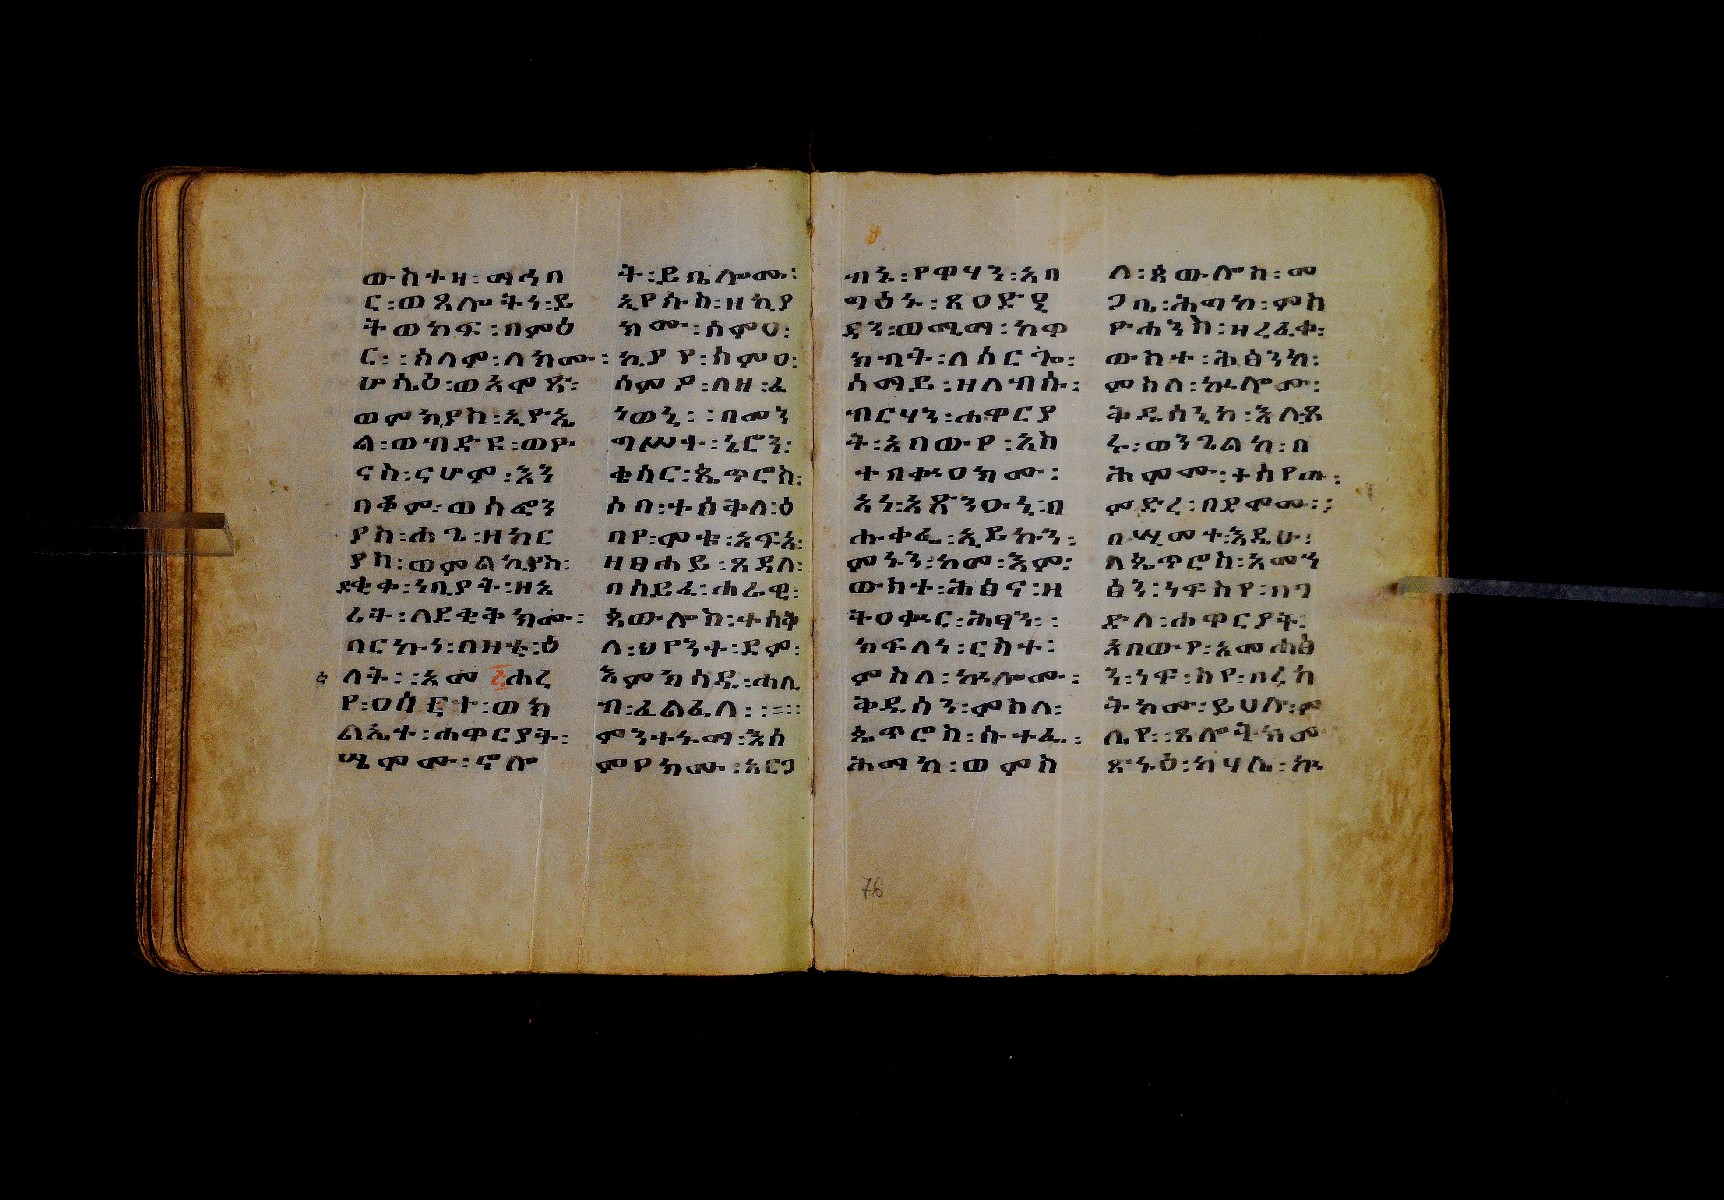 ውስተዛ፡ማኅበ
ር፡ወጸሎትነ፡ይ
ትወከፍ፡በምዕ
ር፡፡ሰላም፡ለክሙ፡
ሆሴዕ፡ወአሞጽ፡
ወምክያስ፡ኢዮኤ
ል፡ወብድዩ፡ወዮ
ናስ፡ናሆም፡እን
በቆም፡ወሰፎን
ያስ፡ሐጌ፡ዘካር
ያስ፡ወምልክያስ፡
ደቂቀ፡ነቢያት፡ዘኦ
ሪት፡ለደቂቅክሙ፡
ባርኩነ፡በዛቲ፡ዕ
ለት፡፡አመ ፳ሐረ
የ፡ዐሰርተ፡ወክ
ልኤተ፡ሐዋርያት፡
ሤሞሙ፡ኖሎ
ት፡ይቤሎሙ፡
ኢየሱስ፡ዘኪያ
ክሙ፡ሰምዐ፡
ኪያየ፡ሰምዐ፡
ሰምዖ፡ለዘ፡ፈ
ነወኒ፡፡በመን
ግሥተ፡ኔሮን፡
ቄሳር፡ጴጥሮስ፡
ሶበ፡ተሰቅለ፡ዕ
በየ፡ሞቱ፡አፍአ፡
ዘፀሐይ፡ጸዳለ፡
በሰይፈ፡ሐራዊ፡
ጳውሎስ፡ተሰቅ
ለ፡ህየንተ፡ደም፡
እምክሳዱ፡ሐሊ
ብ፡ፈልፈለ፡፡
ምንተኑማ፡እሰ
ምየክሙ፡አርጋ
ብኤ፡የዋሃን፡አበ
ግዕኑ፡ጸዐድዒ
ዳን፡ወሚማ፡ከዋ
ክብት፡ለሰርጐ፡
ሰማይ፡ዘለብሱ፡
ብርሃን፡ሐዋርያ
ት፡አበውየ፡እስ
ተበቍዐክሙ፡
እነ፡እጽንዑኒ፡በ
ሑቀፌ፡ኢይኩን፡
ምኑን፡ከመ፡እም፡
ውስተ፡ሕፅና፡ዘ
ትዐቍር፡ሕፃን፡፡
ክፍለነ፡ርስተ፡
ምስለ፡ኵሎሙ፡
ቅዱሳን፡ምስለ፡
ጴጥሮስ፡ሱታፌ፡
ሕማከ፡ወምስ
ለ፡ጳውሎስ፡መ
ጋቢ፡ሕግከ፡ምስ
ዮሐንስ፡ዘረፈቀ፡
ውስተ፡ሕፅንከ፡
ምስለ፡ኵሎሙ፡
ቅዱሳኒከ፡እለጸ
ሩ፡ወንጌልከ፡በ
ሕምሙ፡ተሰየጡ፡
ምድረ፡በደሞሙ፡፡
በሢመተ፡እዲሁ፡
ለጴጥሮስ፡እመን
ፅን፡ነፍስየ፡በገ
ድለ፡ሐዋርያት፡
አበውየ፡አመሐፅ
ን፡ነፍስየ፡በረከ
ትክሙ፡ይህሉ፡ም
ሌየ፡ጸሎትክመ
ጽኑዕ፡ክሃሊ፡ኵ
76